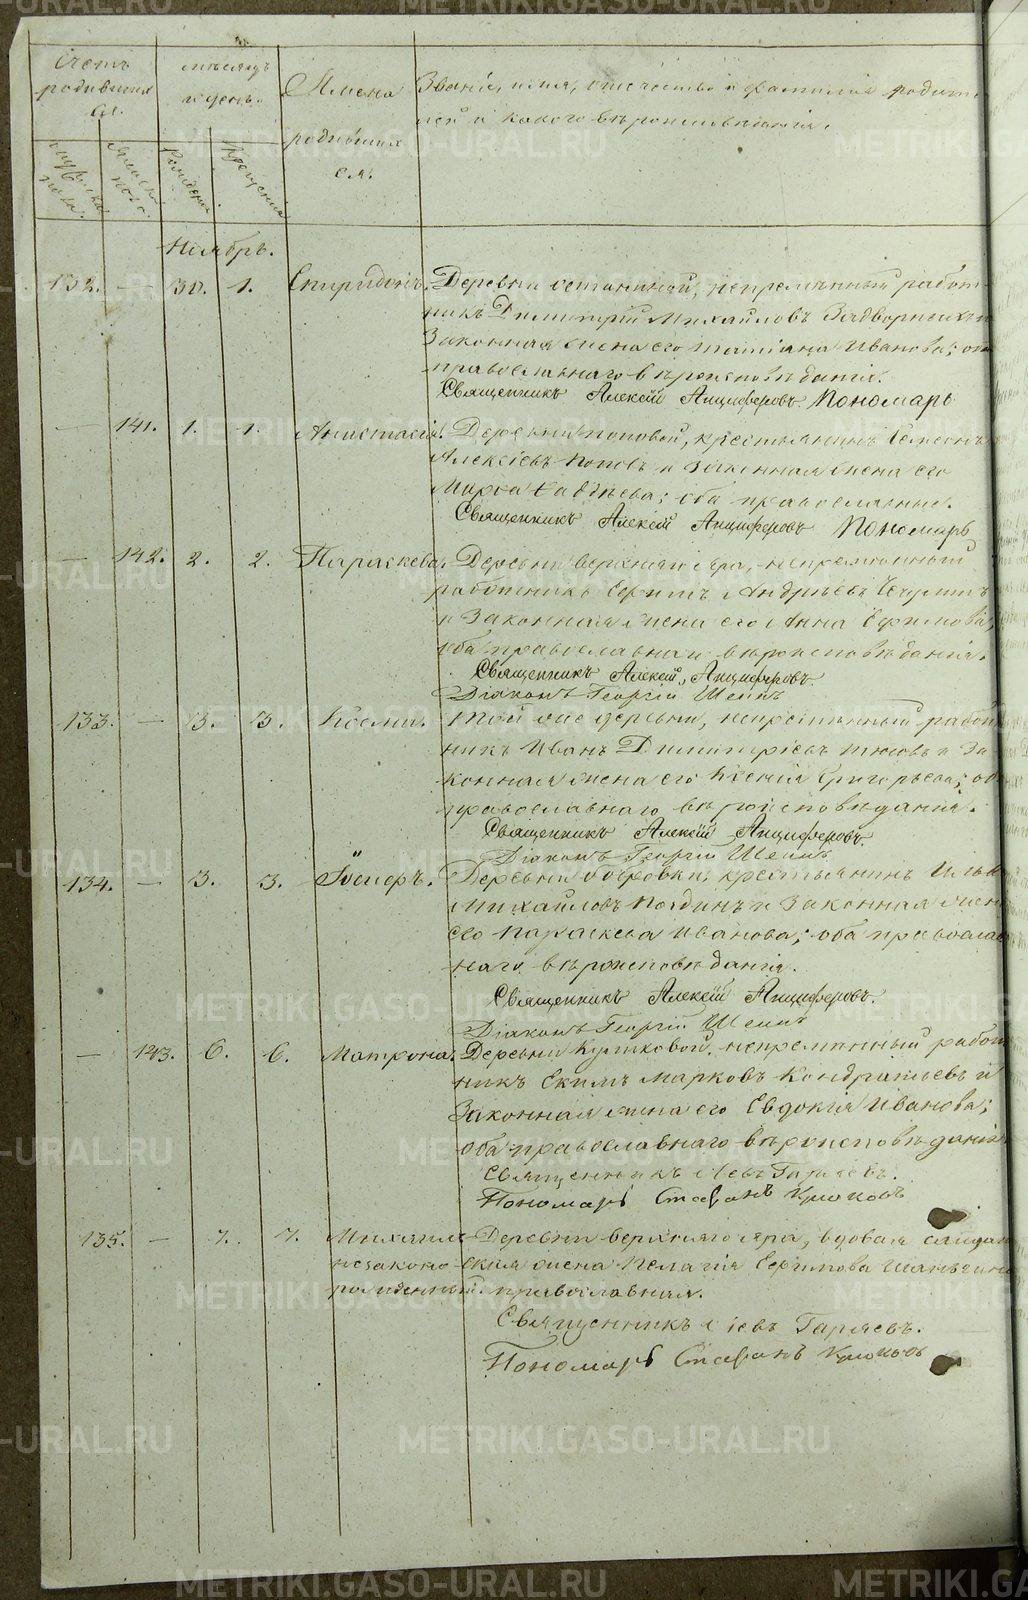 Счетъ родившихся.
Мѣсяцъ и день.
Имена родившихся.
Званіе, имя, отчество и фамилія родите-
лей и какого вѣроисповѣданія.
Мужеска пола.
Женска пола.
Рожденія.
Крещенія
Ноябрь.
132. — 30. 1. Спиридонъ. Деревни непремѣнный работ-
никъ Димитрій Михайловъ Задворныхъ и
Законная жена его Татіана Иванова; оба
православнаго вѣроисповѣданія.
Священникъ Алексій Анциферовъ. Пономарь
— 141. 1. 1. Анастасія. Деревни Поповой, крестьянинъ Семенъ
Алексіевъ Поповъ и Законная жена его
Марѳа Фаддѣева; оба православные.
Священникъ Алексій Анциферовъ Пономарь
— 142. 2. 2. Параскева. Деревни Верхняго яра, непремѣнный
работникъ Ефимъ Андрѣевъ
и Законная жена его Анна Ефимова;
оба православнаго вѣроисповѣданія.
Священникъ Алексій Анциферовъ.
Діаконъ Георгій Шеинъ
133. — 3. 3. Косма. Той же деревни, непремѣнный работ-
никъ Иванъ Димитріевъ и За-
конная жена его Ксенія Григорьева; оба
православнаго вѣроисповѣданія.
Священникъ Алексій Анциферовъ.
Діаконъ Георгій Шеинъ
134. — 3. 3. Деревни крестьянинъ Илья
Михайловъ и Законная жена
его Параскева Иванова; оба православ-
наго вѣроисповѣданія.
Священникъ Алексій Анциферовъ.
Діаконъ Георгій Шеинъ
— 143. 6. 6. Матрона. Деревни Куликовой, непремѣнный работ-
никъ Екимъ Марковъ Кондратьевъ и
Законная жена его Евдокія Иванова;
оба православнаго вѣроисповѣданія
Священникъ Іевъ Гаряевъ.
Пономарь Стефанъ Крюковъ
135. — 7. 7. Михаилъ Деревни Верхняго яра, вдовая
незаконо- жена Пелагія Ефимова
рожденный. православная.
Священникъ Іевъ Гаряевъ.
Пономарь Стефанъ Крюковъ
METRIKI.GASO-URAL.RU